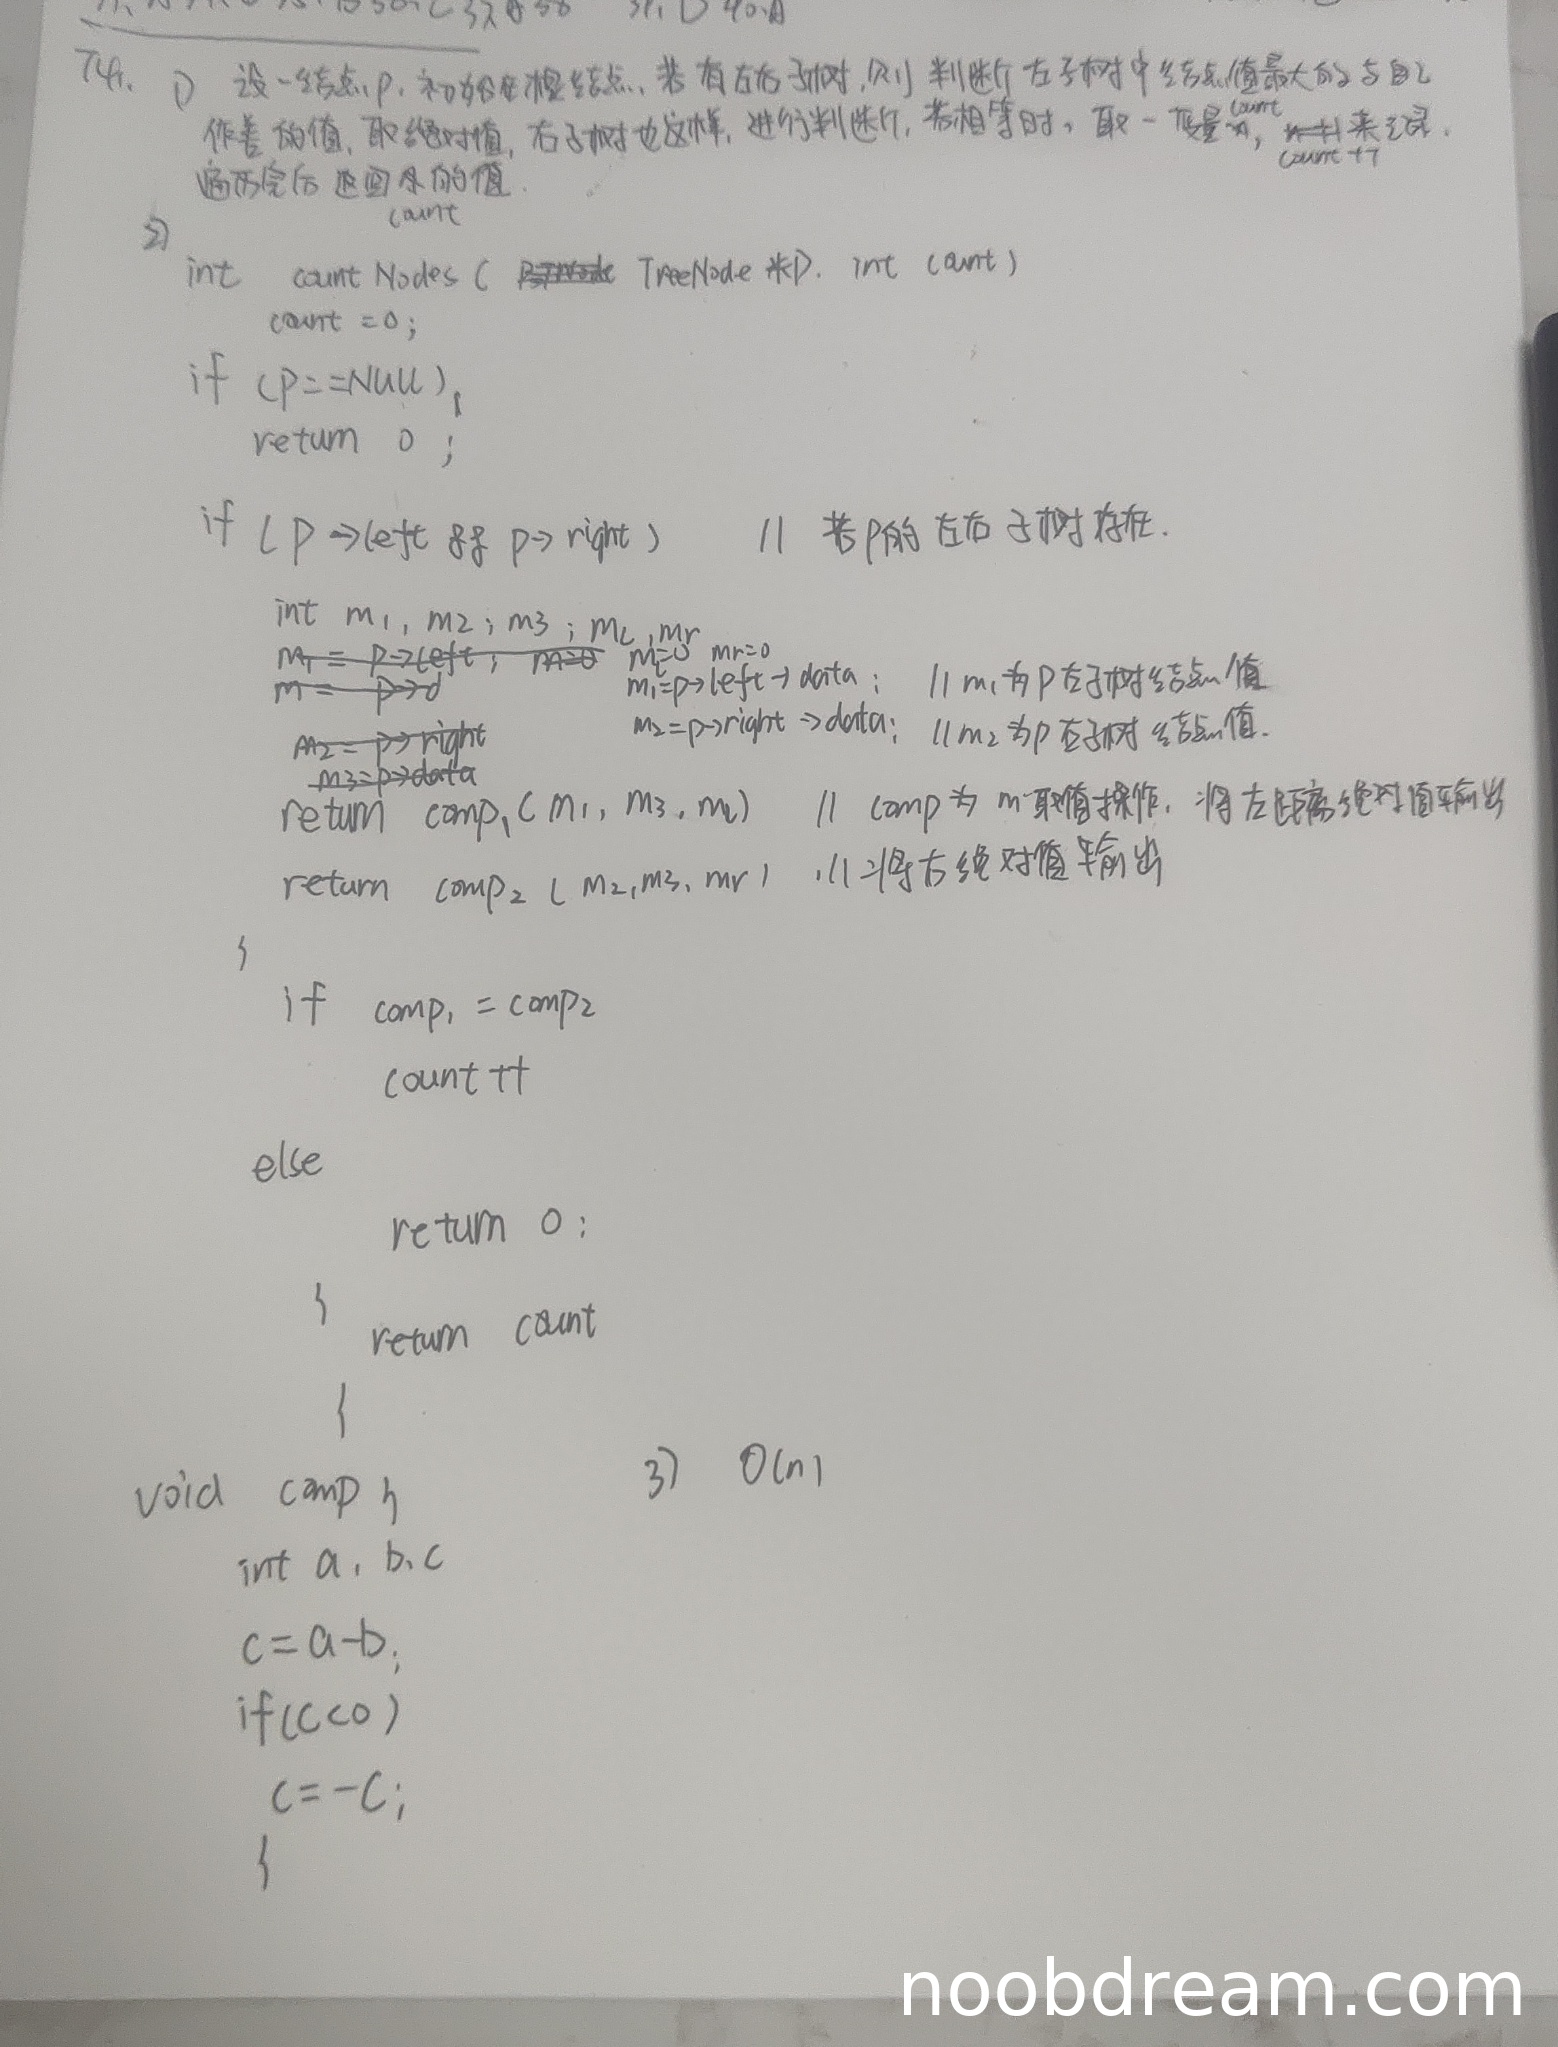 T41. 1) 设一结点p,初始在根结点,若有左右子树,则判断左子树中结点值最大的与自己
作差的值,取绝对值,右子树也这样,进行判断,若相等时,取一变量count, count++来记录.
遍历完后返回count的值.
2)
int countNodes( TreeNode *p, int count)
count = 0;
if (p==NULL){
return 0;
if (p->left && p->right) // 若p的左右子树存在.
int m1, m2; m3; mL, mr
m1 = p->left; m=0 mL=0 mr=0
m = p->d m1=p->left->data; // m1为p左子树结点值
m2 = p->right m2=p->right->data; // m2为p右子树结点值.
m3=p->data
return comp1(m1, m3, mL) // comp为m取值操作,将左距离绝对值输出
return comp2(m2, m3, mr) // 将右绝对值输出
}
if comp1 = comp2
count++
else
return 0;
}
return count
}
void comp { 3) O(n)
int a, b, c
c=a-b;
if(c<0)
c=-c;
}
noobdream.com